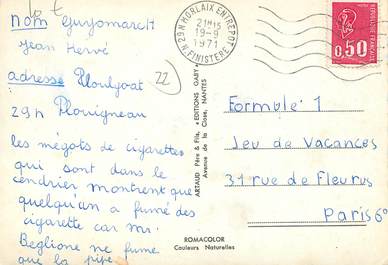 Nom Guyomarch
Jean Hervé
adresse Ploulgoat
29N Plouigneau
les mégots de cigarettes
qui sont dans le
cendrier montrent que
quelqu'un a fumé des
cigarette car mr.
Beglione ne fume
que la pipe!
22
29N MORLAIX ENTREPOT
21H15
19-9
1971
N. FINISTERE
REPUBLIQUE FRANÇAISE
0,50
ARTAUD Père & Fils, «EDITIONS GABY»
Avenue de la Close, NANTES
ROMACOLOR
Couleurs Naturelles
Formule 1
Jeu de Vacances
31 rue de Fleurus
Paris 6°